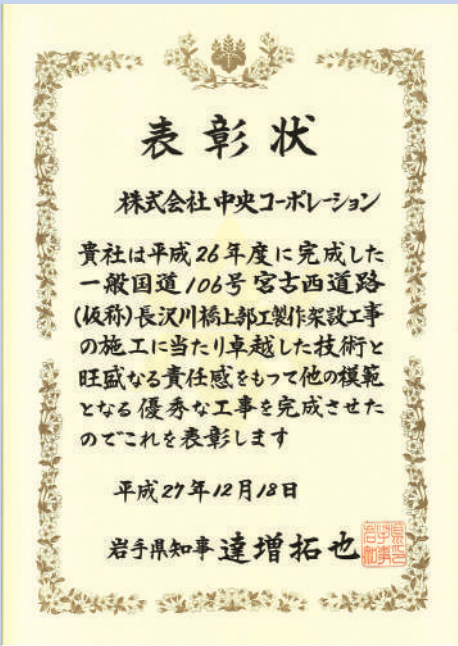 表彰状
株式会社中央コーポレーション
貴社は平成26年度に完成した
一般国道106号宮古西道路
(仮称)長沢川橋上部工製作架設工事
の施工に当たり卓越した技術と
旺盛なる責任感をもって他の模範
となる優秀な工事を完成させた
のでこれを表彰します
平成27年12月18日
岩手県知事 達増拓也